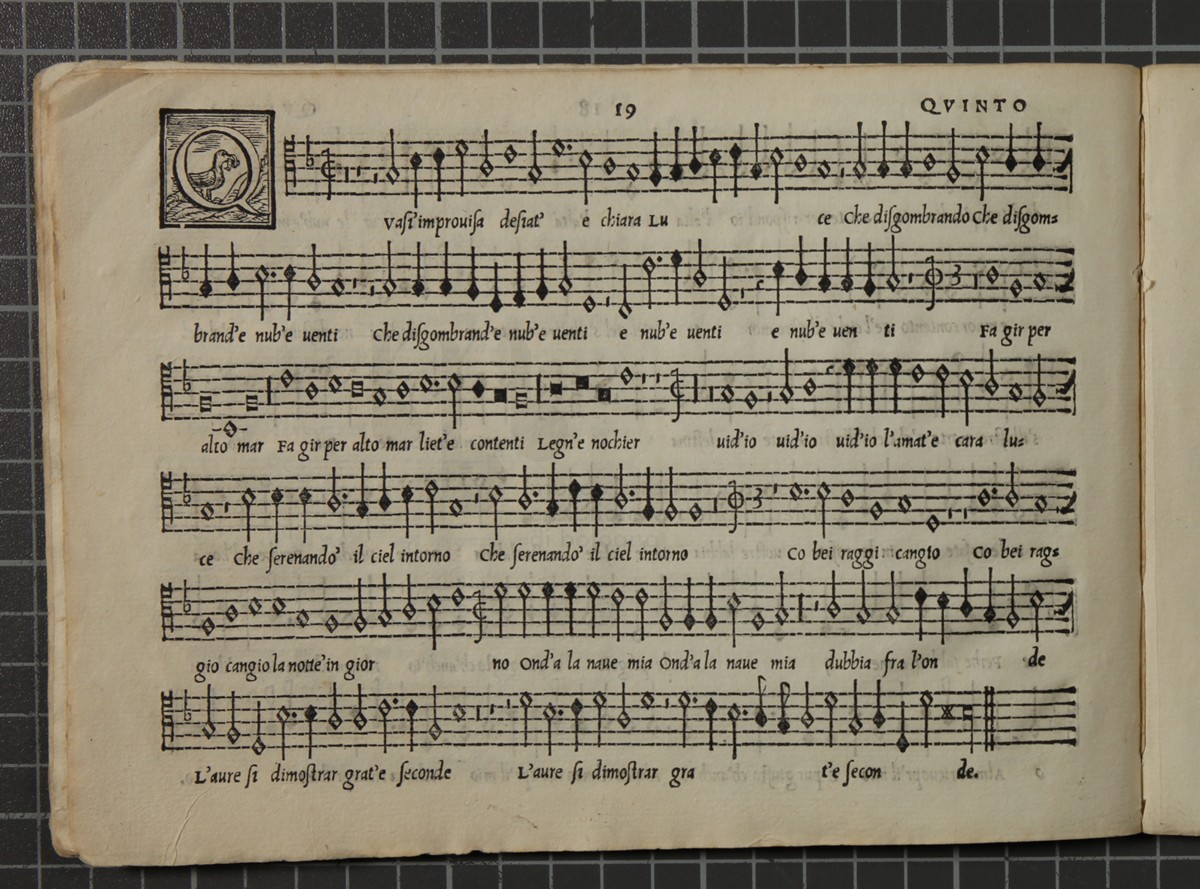 19 QVINTO
QVasi'improuisa desiat' e chiara Lu ce Che disgombrando Che disgom=
brand'e nub'e uenti Che disgombrand'e nub'e uenti e nub'e uenti e nub'e uen ti Fa gir per
alto mar Fa gir per alto mar liet'e contenti Legn'e nochier uid'io uid'io uid'io l'amat'e cara lu=
ce Che serenando' il ciel intorno Che serenando' il ciel intorno Co bei raggi cangio Co bei rag=
gio cangio la notte'in gior no Ond'a la naue mia Ond'a la naue mia dubbia fra l'on de
L'aure si dimostrar grat'e seconde L'aure si dimostrar gra t'e secon de.